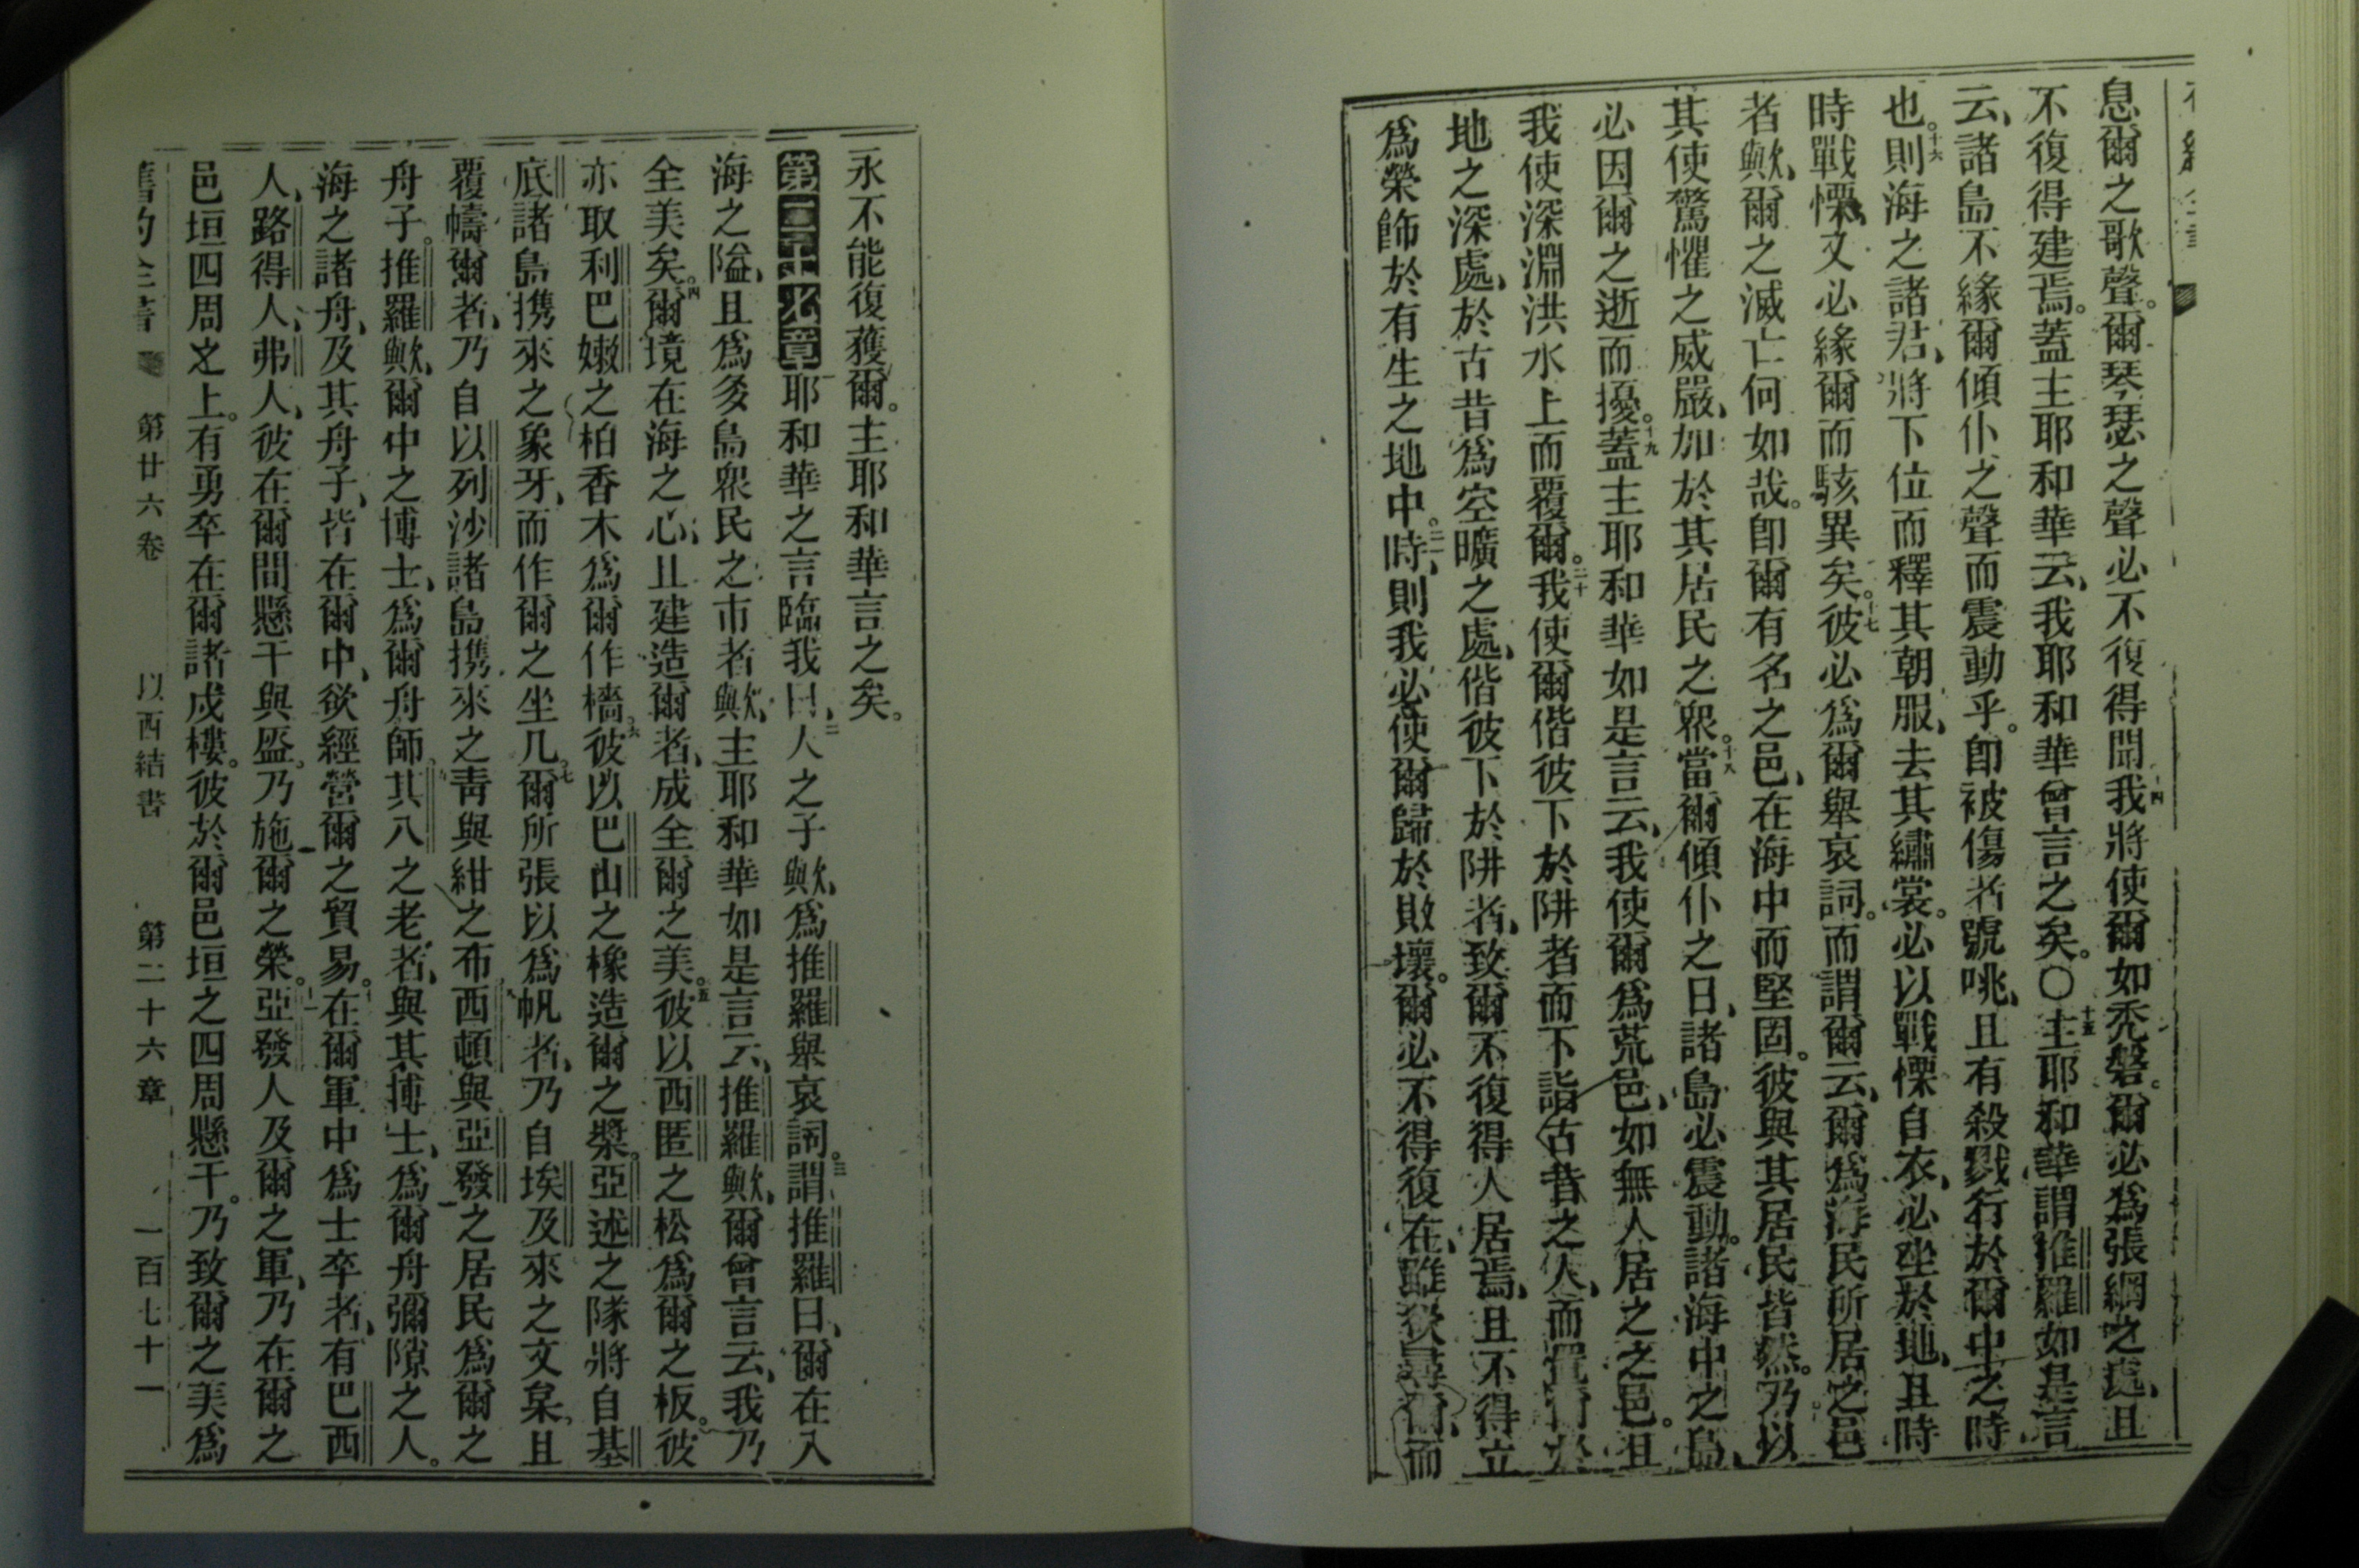 息爾之歌聲。爾琴瑟之聲必不復得聞。十四我將使爾如禿磐。爾必爲張網之處、且
不復得建焉。蓋主耶和華云、我耶和華曾言之矣。〇十五主耶和華謂推羅如是言
云、諸島不緣爾傾仆之聲而震動乎。卽被傷者號咷、且有殺戮行於爾中之時
也。十六則海之諸君、將下位而釋其朝服、去其繡裳。必以戰慄自衣、必坐於地、且時
時戰慄、又必緣爾而駭異矣。十七彼必爲爾舉哀詞。而謂爾云、爾爲海民所居之邑
者歟、爾之滅亡何如哉。卽爾有名之邑、在海中而堅固。彼與其居民皆然。乃以
其使驚懼之威嚴、加於其居民之眾。十八當爾傾仆之日、諸島必震動。諸海中之島、
必因爾之逝而擾。十九蓋主耶和華如是言云、我使爾爲荒邑、如無人居之之邑。且
我使深淵洪水上而覆爾。二十我使爾偕彼下於阱者而下、詣古昔之人、而置爾於
地之深處、於古昔爲空曠之處、偕彼下於阱者、致爾不復得人居焉、且不得立
爲榮飾於有生之地中。二一時、則我必使爾歸於敗壞。爾必不得復在、雖欲尋爾、而
永不能復獲爾。主耶和華言之矣。
第二十七章耶和華之言臨我曰、二人之子歟、爲推羅舉哀詞。三謂推羅曰、爾在入
海之隘、且爲多島眾民之市者歟、主耶和華如是言云、推羅歟、爾曾言云、我乃
全美矣。四爾境在海之心、且建造爾者、成全爾之美。五彼以西匿之松爲爾之板。彼
亦取利巴嫩之柏香木爲爾作檣。六彼以巴山之橡造爾之槳。亞述之隊將自基
底諸島攜來之象牙、而作爾之坐几。七爾所張以爲帆者、乃自埃及來之文枲、且
覆幬爾者、乃自以列沙諸島攜來之靑與紺之布。八西頓與亞發之居民爲爾之
舟子。推羅歟、爾中之博士、爲爾舟師。九其八之老者、與其博士、爲爾舟彌隙之人。
海之諸舟、及其舟子、皆在爾中、欲經營爾之貿易。十在爾軍中爲士卒者、有巴西
人、路得人、弗人、彼在爾間懸干與盔。乃施爾之榮。十一亞發人及爾之軍、乃在爾之
邑垣四周之上。有勇卒在爾諸戍樓。彼於爾邑垣之四周懸干。乃致爾之美爲
舊約全書 第廿六卷 以西結書 第二十六章 一百七十一